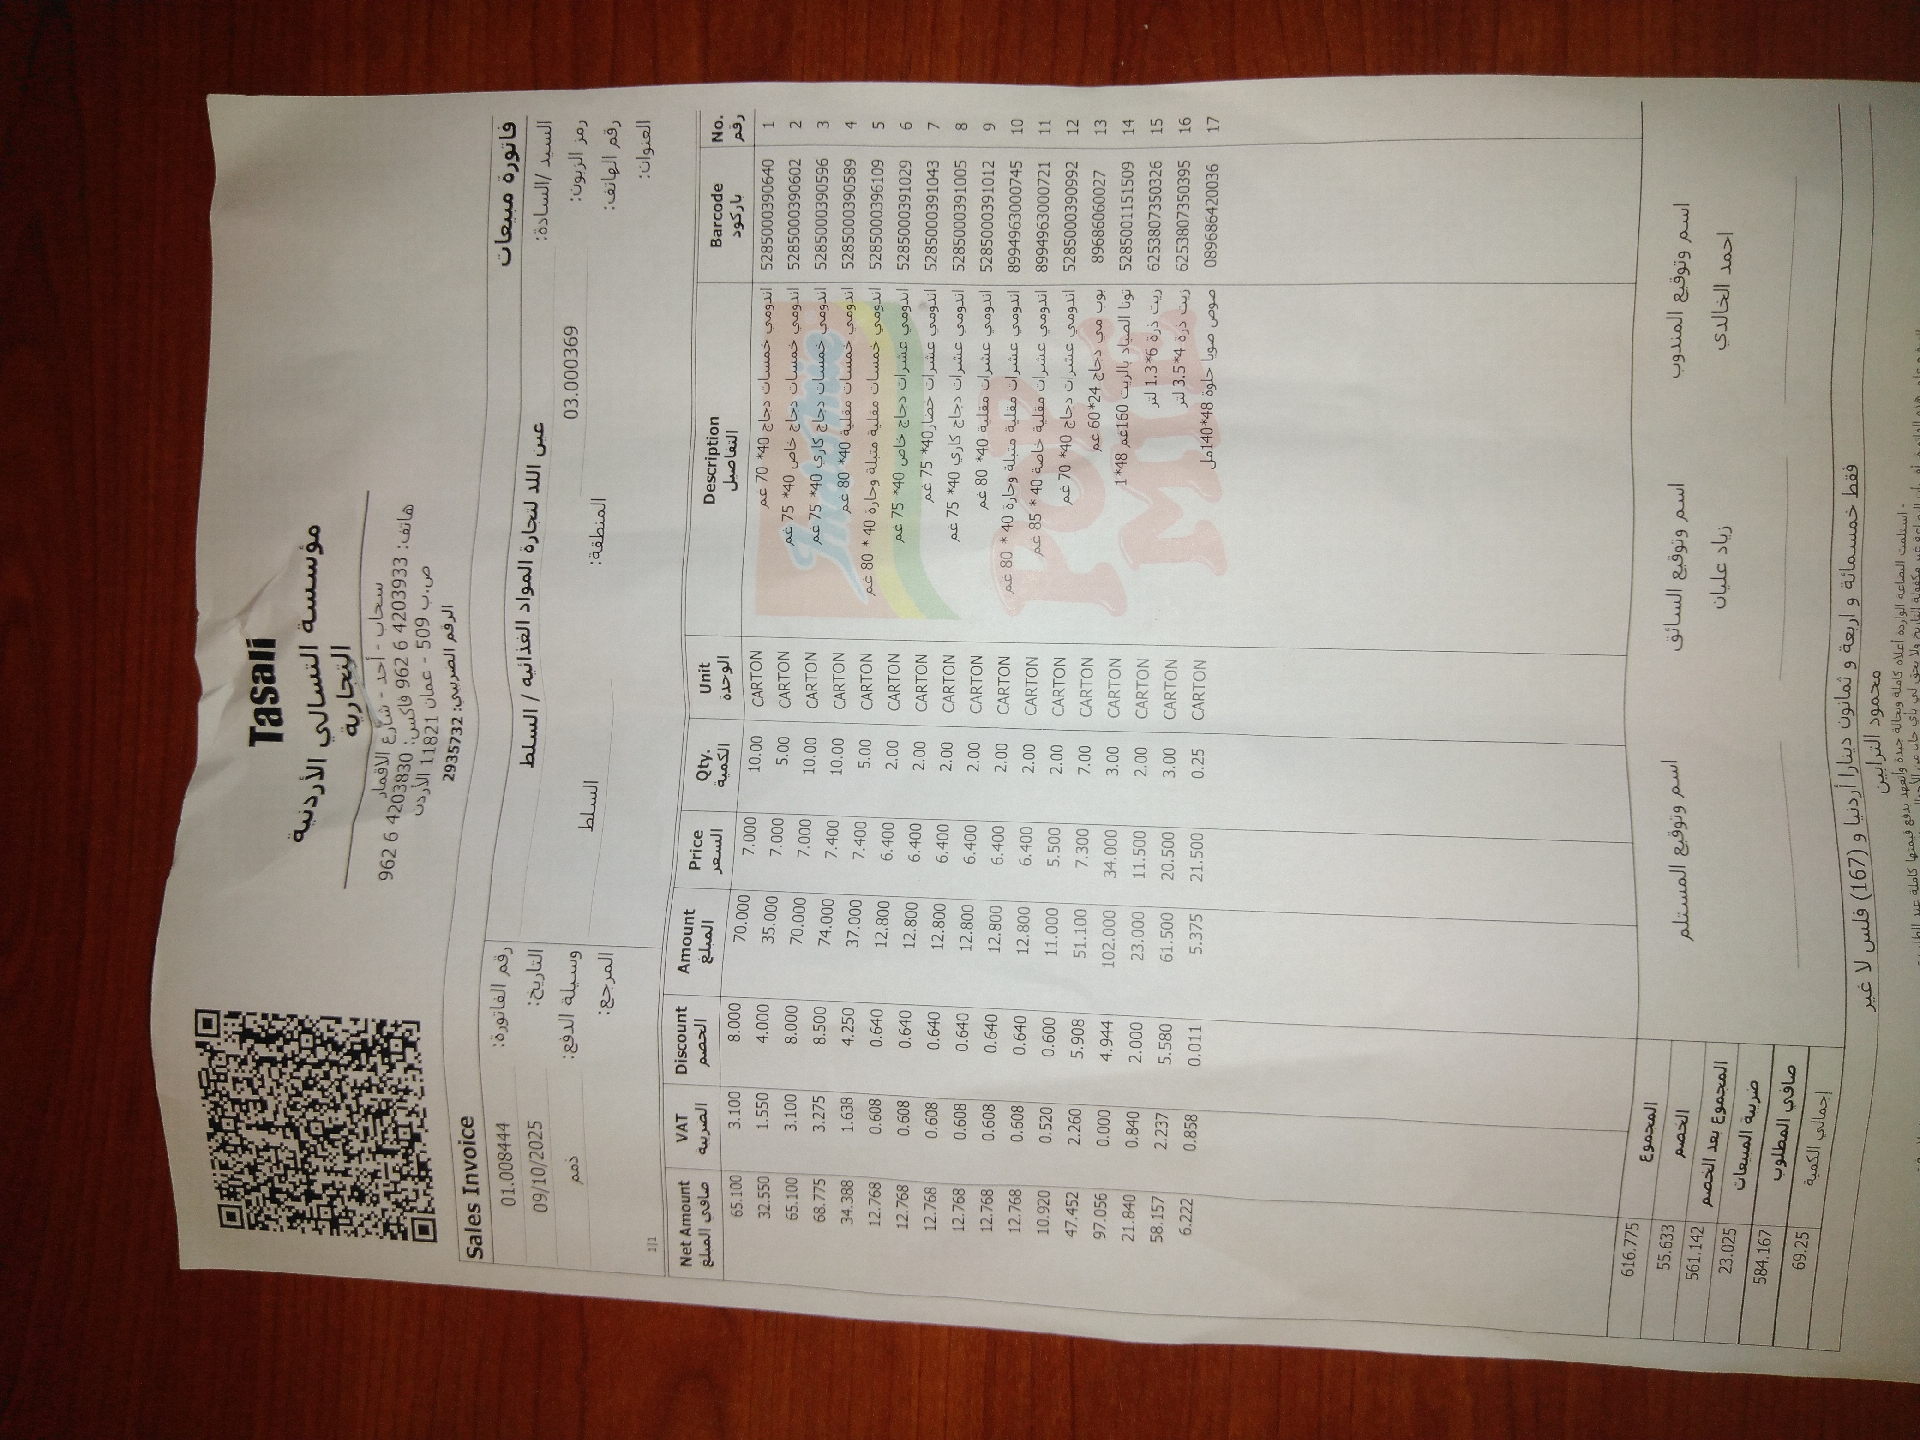 Tasali
مؤسسة التسالي الأردنية
التجارية
سحاب - أحد - شارع الاقمار
هاتف: 4203933 6 962 فاكس: 4203830 6 962
ص.ب 509 - عمان 11821 الأردن
الرقم الضريبي: 2935732
فاتورة مبيعات Sales Invoice
السيد /السادة: عين اللد لتجارة المواد الغذائية / السلط
رمز الزبون: 03.000369
رقم الهاتف: المنطقة: السلط
العنوان:
رقم الفاتورة: 01.008444
التاريخ: 09/10/2025
وسيلة الدفع: ذمم
المرجع:
1/1
No. Barcode Description Unit Qty. Price Amount Discount VAT Net Amount
رقم باركود التفاصيل الوحدة الكمية السعر المبلغ الخصم الضريبة صافي المبلغ
1 5285000390640 اندومي خمسات دجاج 40* 70 غم CARTON 10.00 7.000 70.000 8.000 3.100 65.100
2 5285000390602 اندومي خمسات دجاج خاص 40* 75 غم CARTON 5.00 7.000 35.000 4.000 1.550 32.550
3 5285000390596 اندومي خمسات دجاج كاري 40* 75 غم CARTON 10.00 7.000 70.000 8.000 3.100 65.100
4 5285000390589 اندومي خمسات مقلية 40* 80 غم CARTON 10.00 7.400 74.000 8.500 3.275 68.775
5 5285000396109 اندومي خمسات مقلية متبلة وحارة 40 * 80 غم CARTON 5.00 7.400 37.000 4.250 1.638 34.388
6 5285000391029 اندومي عشرات دجاج خاص 40* 75 غم CARTON 2.00 6.400 12.800 0.640 0.608 12.768
7 5285000391043 اندومي عشرات خضار40* 75 غم CARTON 2.00 6.400 12.800 0.640 0.608 12.768
8 5285000391005 اندومي عشرات دجاج كاري 40* 75 غم CARTON 2.00 6.400 12.800 0.640 0.608 12.768
9 5285000391012 اندومي عشرات مقلية 40* 80 غم CARTON 2.00 6.400 12.800 0.640 0.608 12.768
10 8994963000745 اندومي عشرات مقلية متبلة وحارة 40 * 80 غم CARTON 2.00 6.400 12.800 0.640 0.608 12.768
11 8994963000721 اندومي عشرات مقلية خاصة 40 * 85 غم CARTON 2.00 6.400 12.800 0.640 0.608 12.768
12 5285000390992 اندومي عشرات دجاج 40* 70 غم CARTON 2.00 5.500 11.000 0.600 0.520 10.920
13 89686060027 بوب مي دجاج 24*60 غم CARTON 7.00 7.300 51.100 5.908 2.260 47.452
14 5285001151509 تونا الصياد بالزيت 160غم 48*1 CARTON 3.00 34.000 102.000 4.944 0.000 97.056
15 6253807350326 زيت ذرة 6*1.3 لتر CARTON 2.00 11.500 23.000 2.000 0.840 21.840
16 6253807350395 زيت ذرة 4*3.5 لتر CARTON 3.00 20.500 61.500 5.580 2.237 58.157
17 089686420036 صوص صويا حلوة 48*140مل CARTON 0.25 21.500 5.375 0.011 0.858 6.222
Indomie
POP
MIE
المجموع 616.775
الخصم 55.633
المجموع بعد الخصم 561.142
ضريبة المبيعات 23.025
صافي المطلوب 584.167
إجمالي الكمية 69.25
اسم وتوقيع المندوب اسم وتوقيع السائق اسم وتوقيع المستلم
احمد الخالدي زياد عليان
فقط خمسمائة و اربعة و ثمانون دينارا أردنيا و (167) فلس لا غير
محمود الترابين